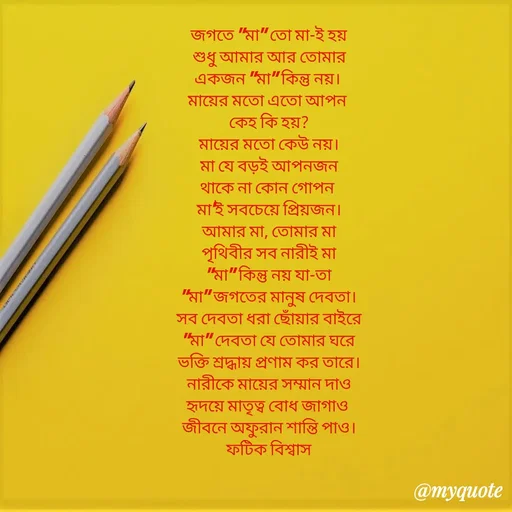 জগতে "মা" তো মা-ই হয়
শুধু আমার আর তোমার
একজন "মা" কিন্তু নয়।
মায়ের মতো এতো আপন
কেহ কি হয়?
মায়ের মতো কেউ নয়।
মা যে বড়ই আপনজন
থাকে না কোন গোপন
মা'ই সবচেয়ে প্রিয়জন।
আমার মা, তোমার মা
পৃথিবীর সব নারীই মা
"মা" কিন্তু নয় যা-তা
"মা" জগতের মানুষ দেবতা।
সব দেবতা ধরা ছোঁয়ার বাইরে
"মা" দেবতা যে তোমার ঘরে
ভক্তি শ্রদ্ধায় প্রণাম কর তারে।
নারীকে মায়ের সম্মান দাও
হৃদয়ে মাতৃত্ব বোধ জাগাও
জীবনে অফুরান শান্তি পাও।
ফটিক বিশ্বাস
@myquote